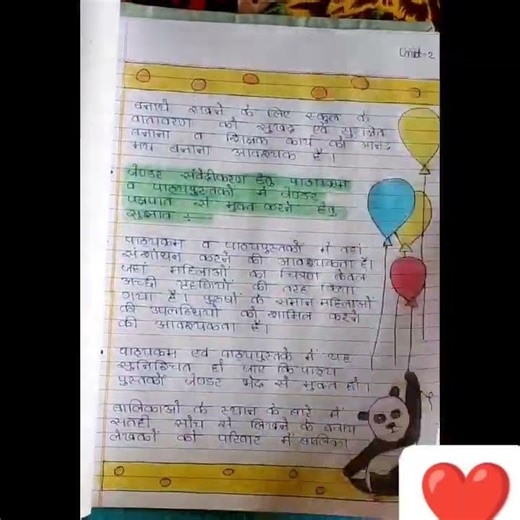 Unit-2
बनाये रखने के लिए स्कूल के
वातावरण को सुखद एवं सुरक्षित
बनाना व शिक्षक कार्य को आनंद
मय बनाना आवश्यक है।
जेण्डर संवेदीकरण हेतु पाठ्यक्रम
व पाठ्यपुस्तकों में जेण्डर
पक्षपात से मुक्त करने हेतु
सुझाव :-
पाठ्यक्रम व पाठ्यपुस्तकों में वहां
संशोधन करने की आवश्यकता है।
जहां महिलाओं का चित्रण केवल
अच्छी गृहणियों की तरह किया
गया है। पुरुषों के समान महिलाओं
की उपलब्धियों को शामिल करने
की आवश्यकता है।
पाठ्यक्रम एवं पाठ्यपुस्तके में यह
सुनिश्चित हो जाए कि पाठ्य
पुस्तकें जेण्डर भेद से मुक्त हो।
बालिकाओं के स्थान के बारे में
सतही सोच से लिखने के बजाय
लेखकों को परिवार में बालिका